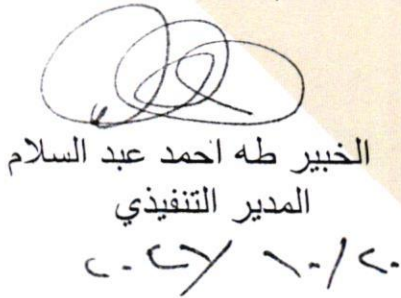 الخبير طه احمد عبد السلام
المدير التنفيذي
٢٠٢٢/١٠/٢٠